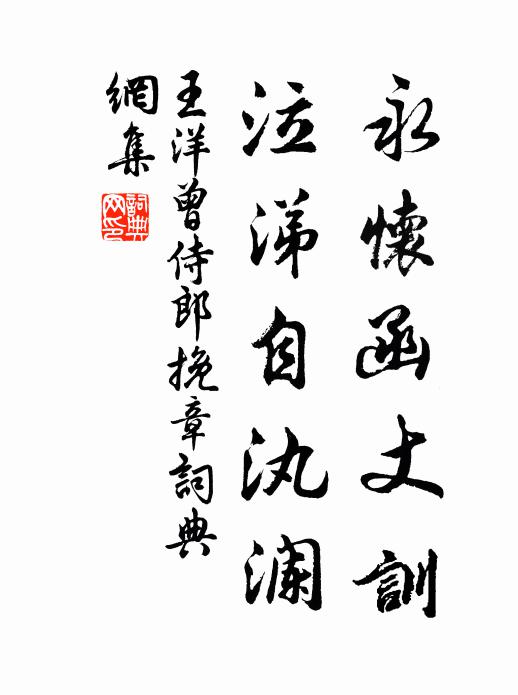 永懷函丈訓
泣涕自汍瀾
王洋曾侍郎挽章詞典
網集
詞典
网印